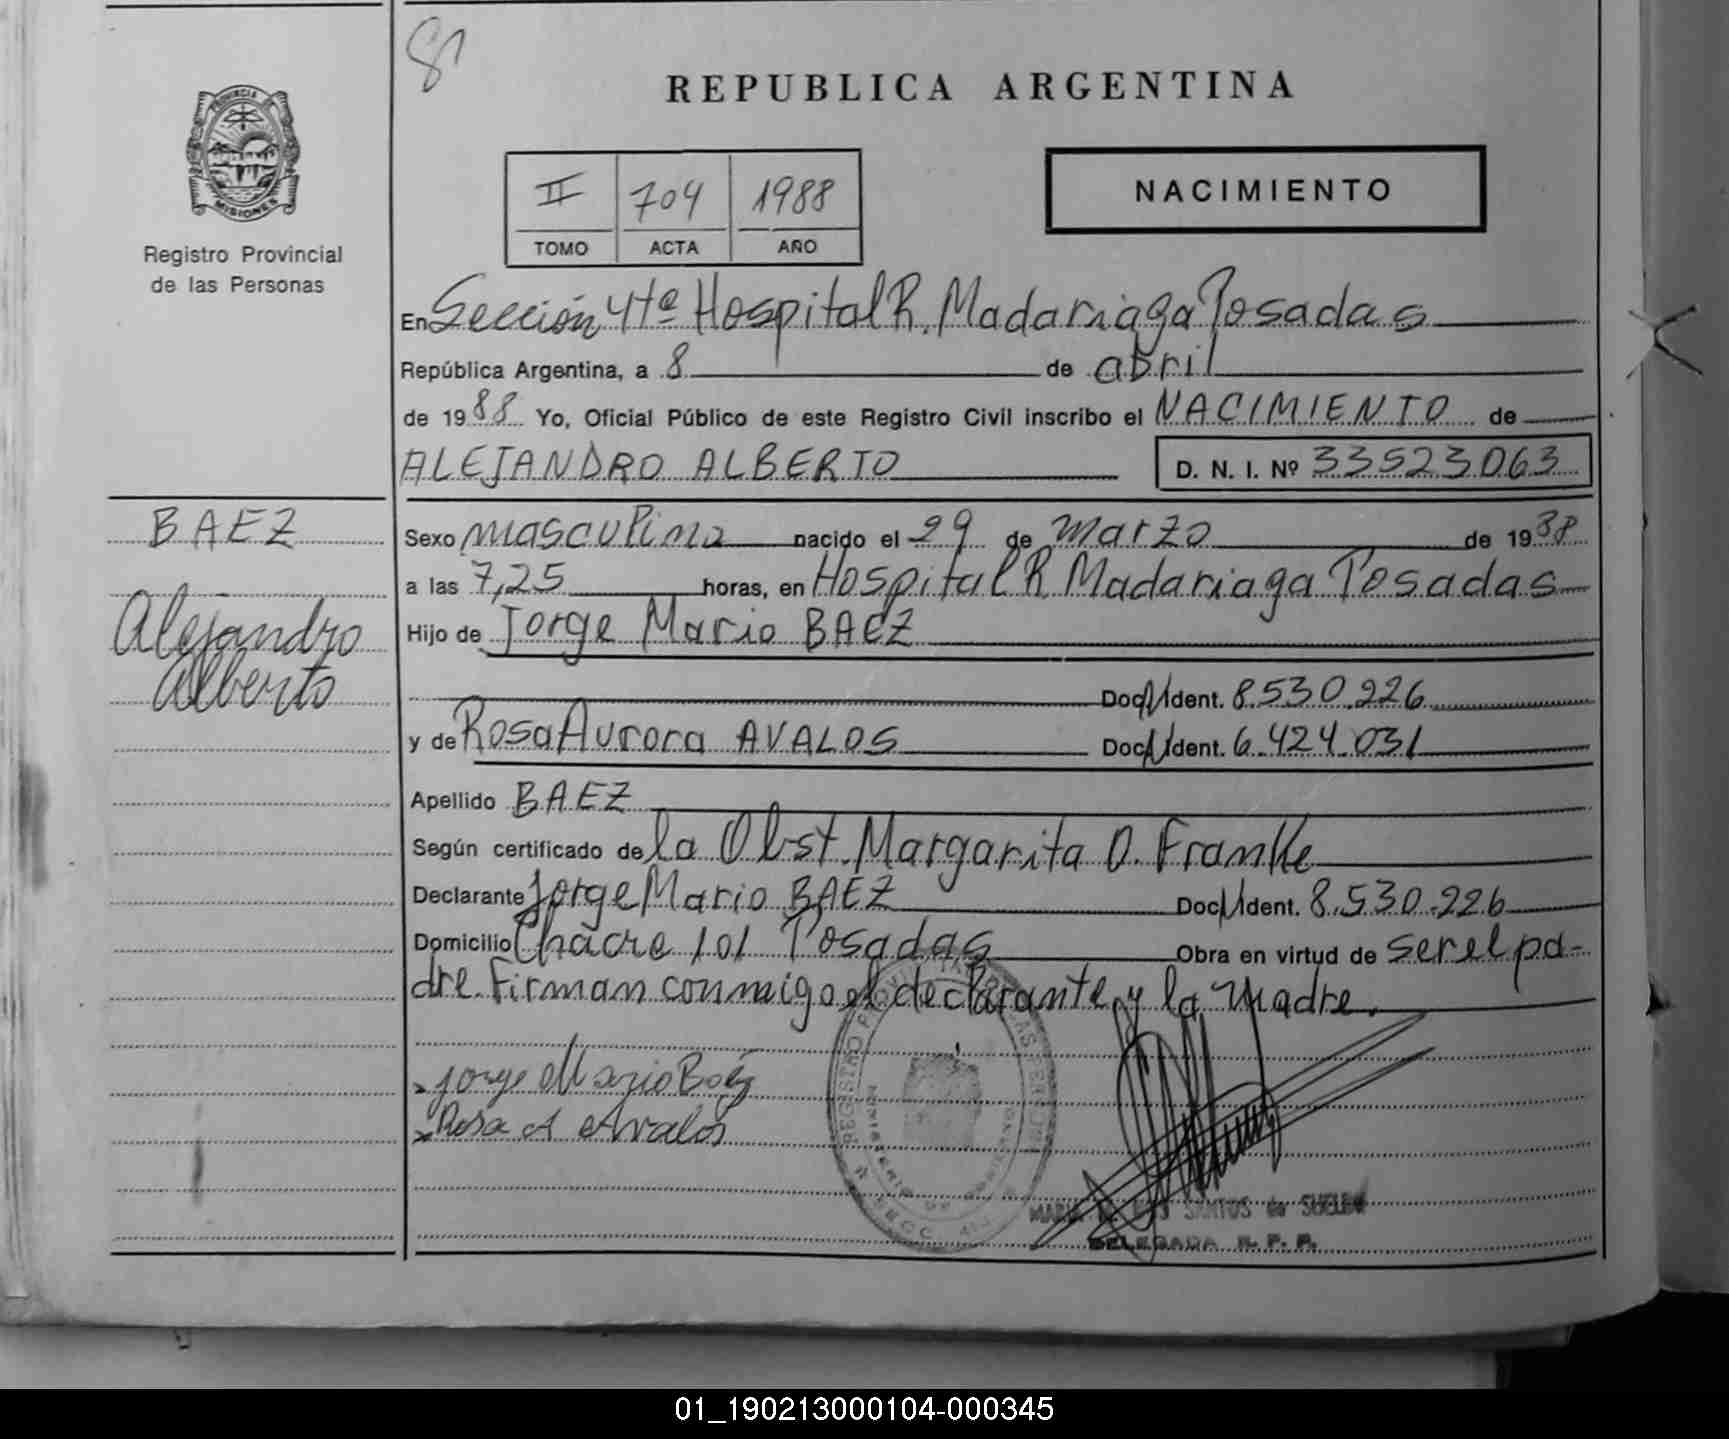 81
REPUBLICA ARGENTINA
PROVINCIA DE
MISIONES
Registro Provincial
de las Personas
II 704 1988
TOMO ACTA AÑO
NACIMIENTO
En Sección 4ta Hospital R. Madariaga Posadas
República Argentina, a 8 de abril
de 1988 Yo, Oficial Público de este Registro Civil inscribo el NACIMIENTO de
ALEJANDRO ALBERTO D. N. I. Nº 33523063
BAEZ
Alejandro
Alberto
Sexo masculino nacido el 29 de marzo de 1988
a las 7,25 horas, en Hospital R Madariaga Posadas
Hijo de Jorge Mario BAEZ
Doc. Ident. 8.530.226
y de Rosa Aurora AVALOS Doc. Ident. 6.424.031
Apellido BAEZ
Según certificado de la Obst. Margarita O. Franke
Declarante Jorge Mario BAEZ Doc. Ident. 8.530.226
Domicilio Chacra 101 Posadas Obra en virtud de ser el pa-
dre. Firman conmigo el declarante y la madre.
Jorge Mario Baéz
Rosa A Avalos
REGISTRO PROVINCIAL DE LAS PERSONAS
MINISTERIO DE GOBIERNO
SANTOS de
DELEGADA R. P. P.
01_190213000104-000345